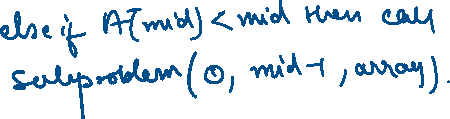 else if A[mid] < mid then call
subproblem (0, mid-1, array).